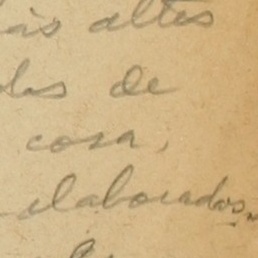 más altas
de
cosa,
elaborados